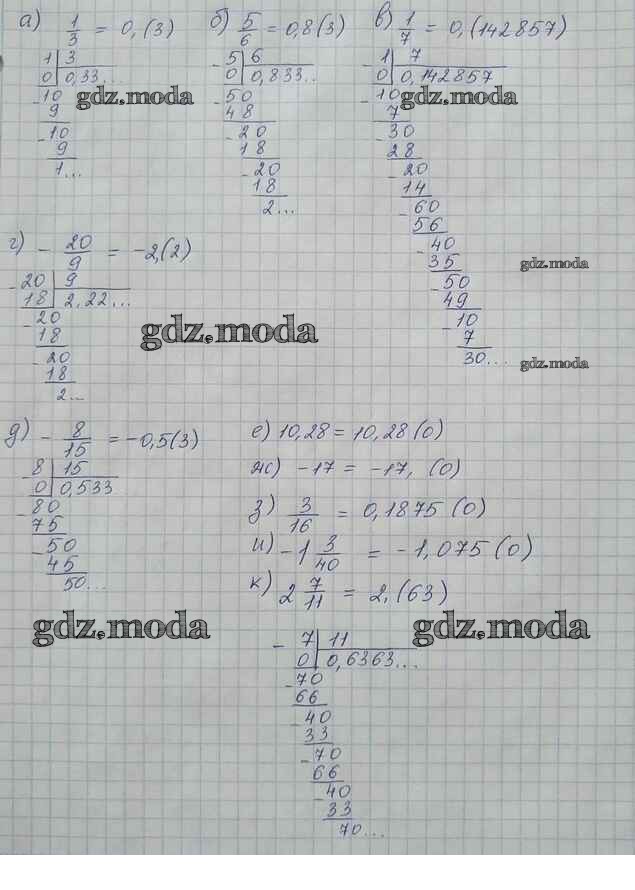 а) 1/3 = 0,(3)
- 1 | 3
0 | 0,33...
- 10
9
- 10
9
1...
б) 5/6 = 0,8(3)
- 5 | 6
0 | 0,833...
- 50
48
- 20
18
- 20
18
2...
в) 1/7 = 0,(142857)
- 1 | 7
0 | 0,142857
- 10
7
- 30
28
- 20
14
- 60
56
- 40
35
- 50
49
- 10
7
30...
gdz.moda
gdz.moda
gdz.moda
gdz.moda
г) - 20/9 = -2,(2)
- 20 | 9
18 | 2,22...
- 20
18
- 20
18
2...
gdz.moda
gdz.moda
д) - 8/15 = -0,5(3)
- 8 | 15
0 | 0,533
- 80
75
- 50
45
50...
е) 10,28 = 10,28(0)
ж) -17 = -17,(0)
з) 3/16 = 0,1875(0)
и) -1 3/40 = -1,075(0)
к) 2 7/11 = 2,(63)
gdz.moda
gdz.moda
- 7 | 11
0 | 0,6363...
- 70
66
- 40
33
- 70
66
- 40
33
70...